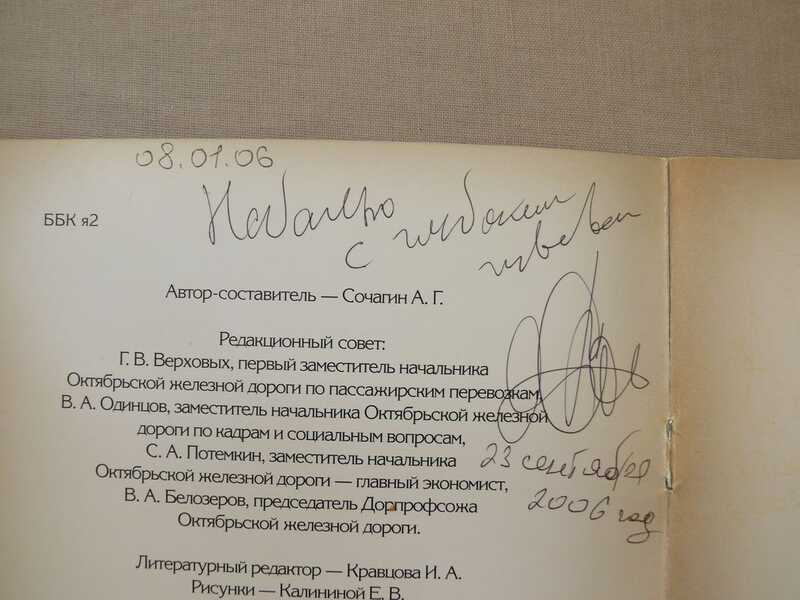 08.01.06
с глубоким
чувством
ББК я2
Автор-составитель — Сочагин А. Г.
Редакционный совет:
Г. В. Верховых, первый заместитель начальника
Октябрьской железной дороги по пассажирским перевозкам,
В. А. Одинцов, заместитель начальника Октябрьской железной
дороги по кадрам и социальным вопросам,
С. А. Потемкин, заместитель начальника
Октябрьской железной дороги — главный экономист,
В. А. Белозеров, председатель Дорпрофсожа
Октябрьской железной дороги.
23 сентября
2006 год
Литературный редактор — Кравцова И. А.
Рисунки — Калининой Е. В.